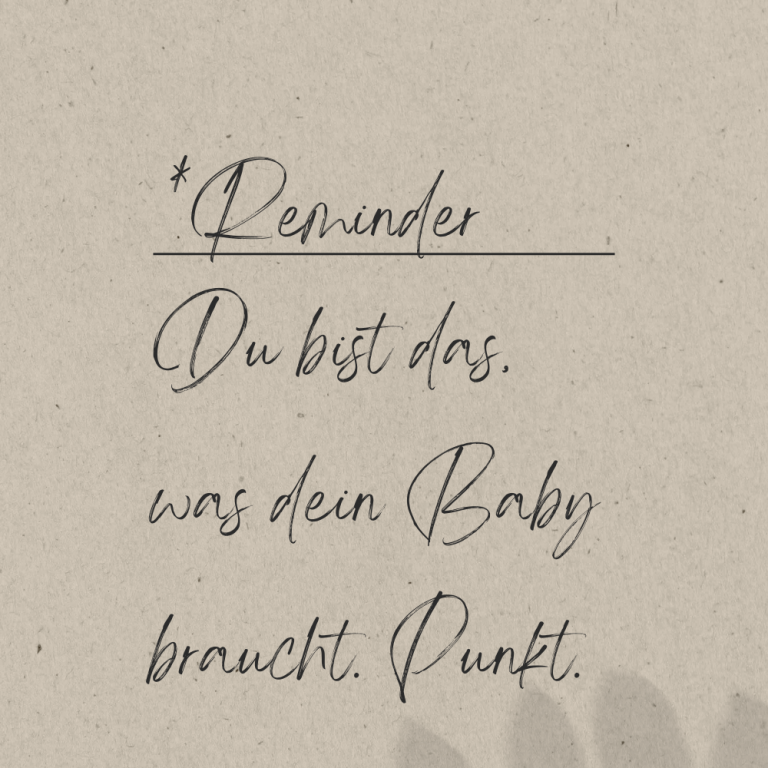 *Reminder
Du bist das,
was dein Baby
braucht. Punkt.